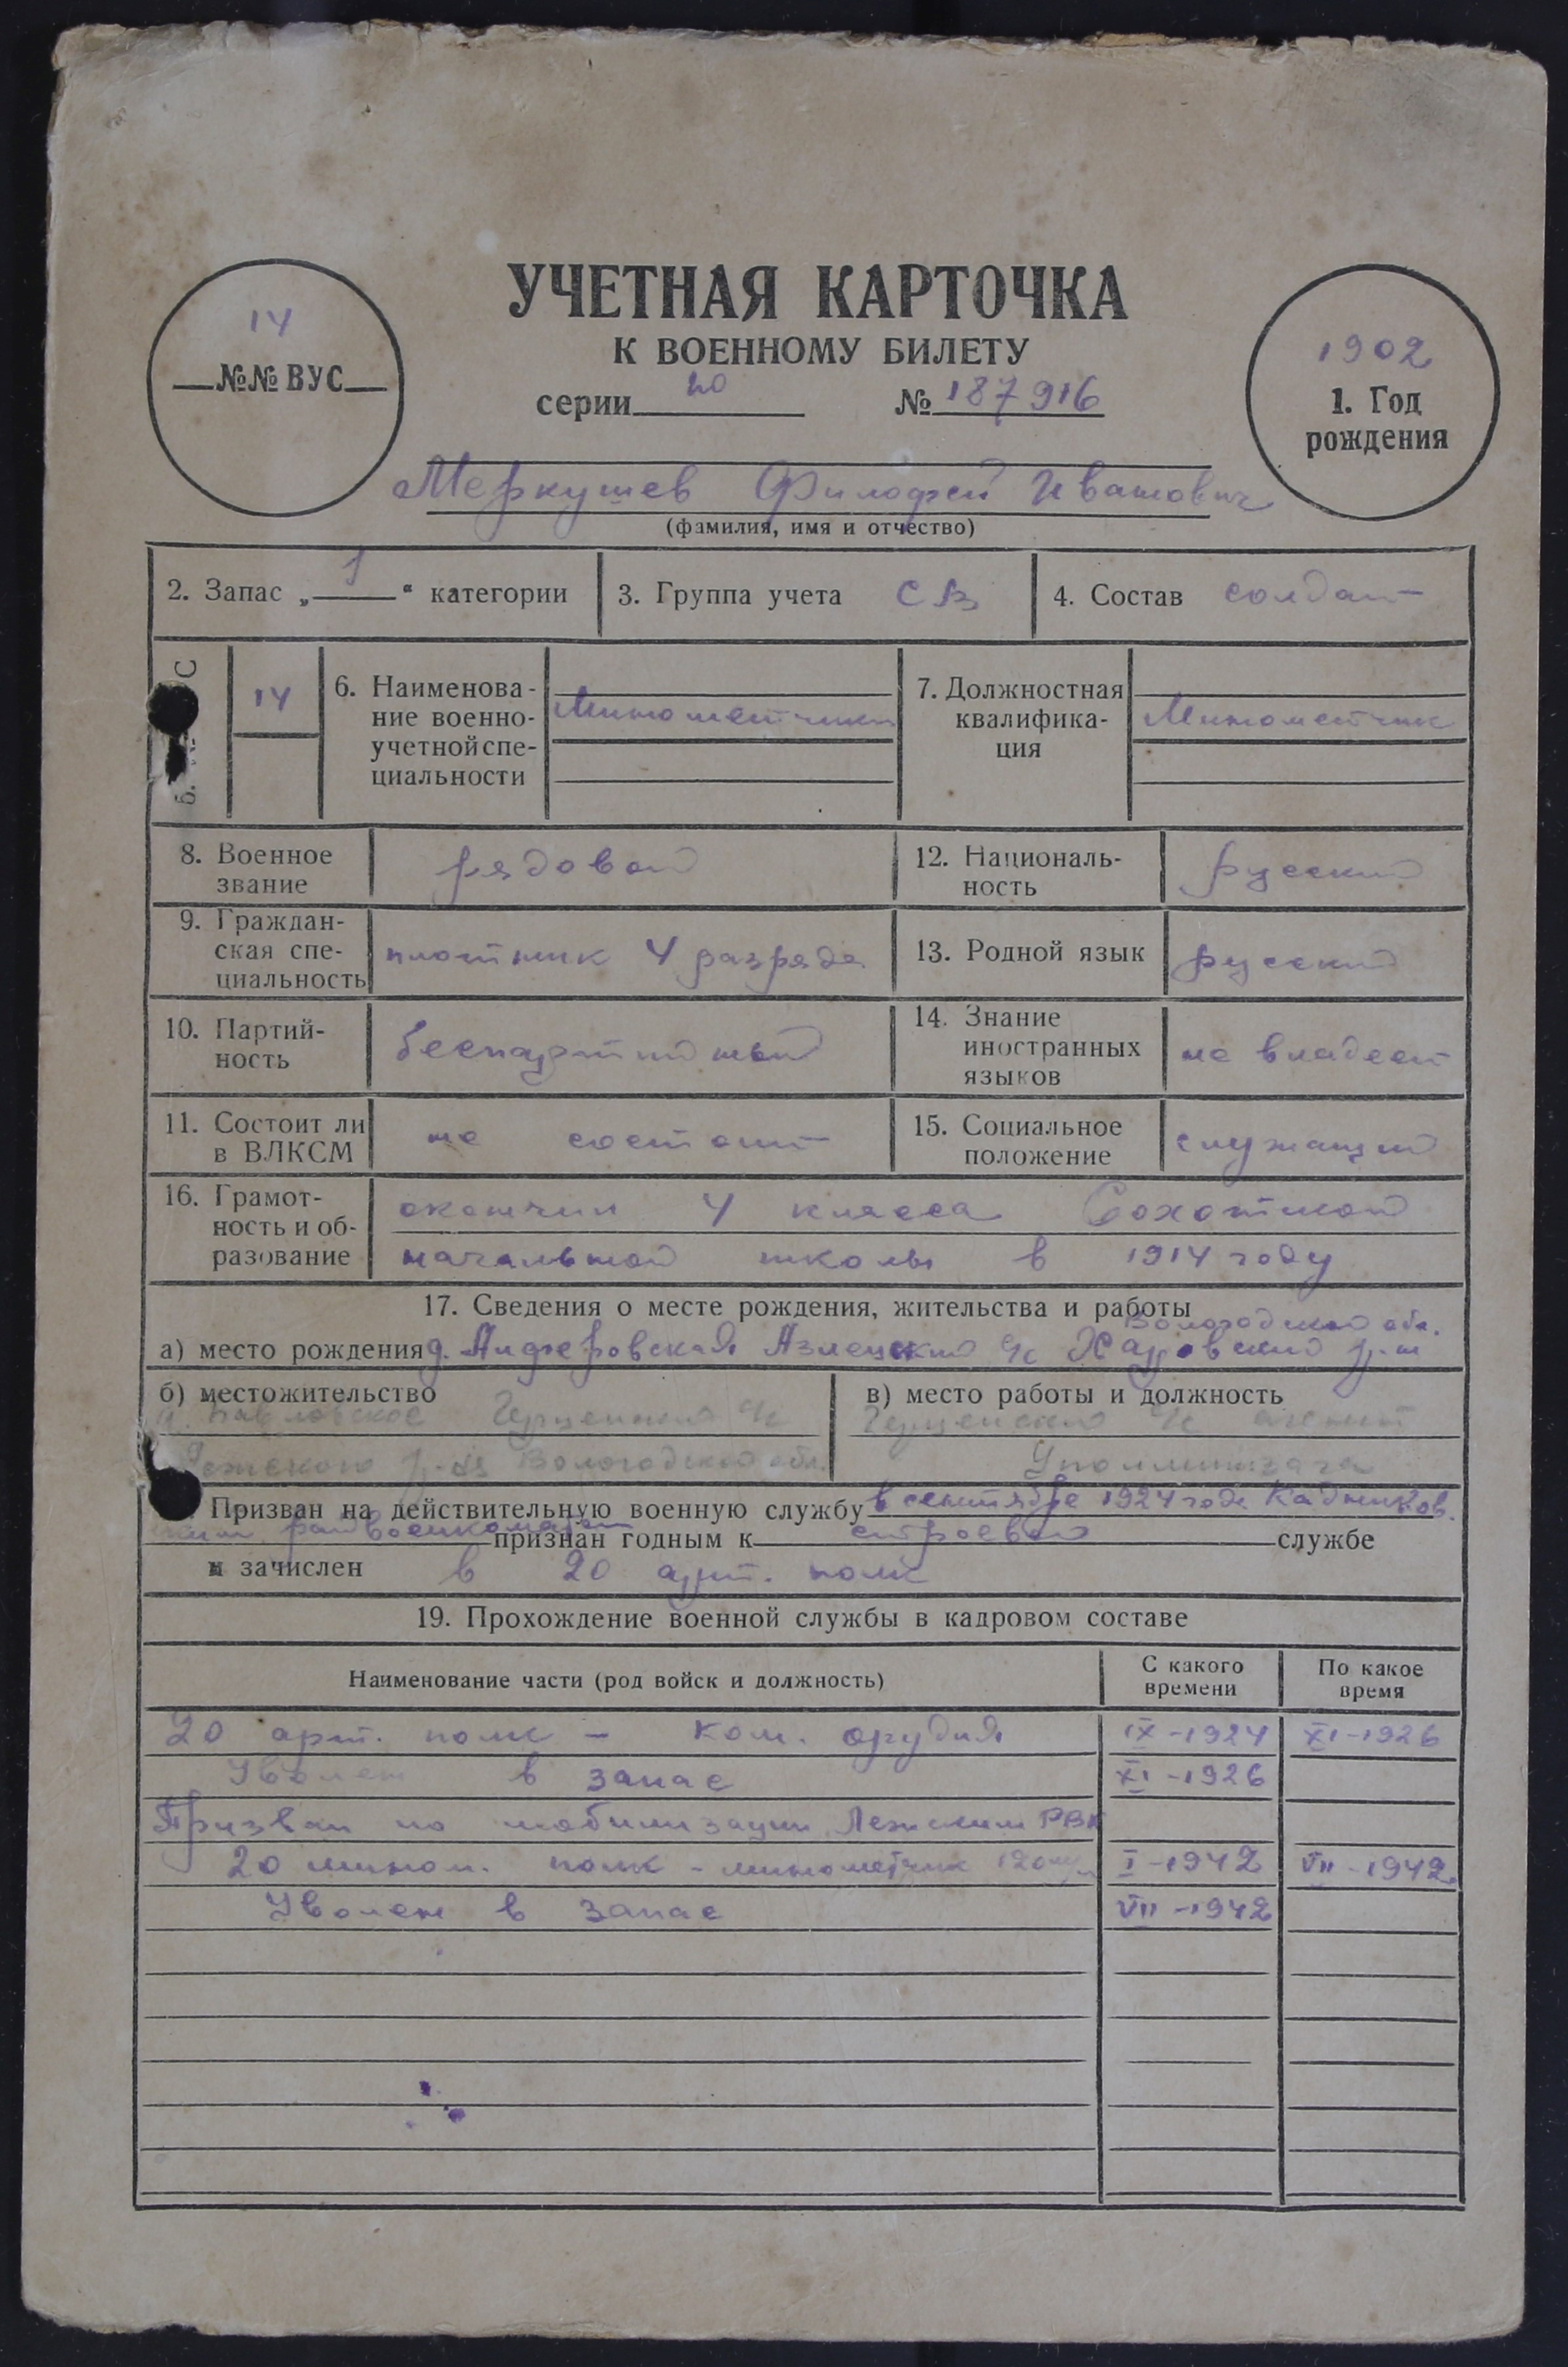 УЧЕТНАЯ КАРТОЧКА
К ВОЕННОМУ БИЛЕТУ
серии № 187916
14
№№ ВУС
1902
1. Год
рождения
Меркушев Филофей Иванович
(фамилия, имя и отчество)
2. Запас „ 1 “ категории
3. Группа учета СВ
4. Состав солдат
С
14
6. Наименова-
ние военно-
учетной спе-
циальности
Минометчики
7. Должностная
квалифика-
ция
Минометчик
8. Военное
звание
рядовой
12. Националь-
ность
русский
9. Граждан-
ская спе-
циальность
плотник 4 разряда
13. Родной язык
русский
10. Партий-
ность
беспартийный
14. Знание
иностранных
языков
не владеет
11. Состоит ли
в ВЛКСМ
не состоит
15. Социальное
положение
служащий
16. Грамот-
ность и об-
разование
окончил 4 класса Сохотской
начальной школы в 1914 году
17. Сведения о месте рождения, жительства и работы
Вологодской обл.
а) место рождения д. Алферовская Азлецкий с/с Харовский р-н
б) местожительство
Павловское с/с
Лежского р-на Вологодской обл.
в) место работы и должность
с/с агент
Уполминзага
Призван на действительную военную службу в сентябре 1924 года Кадников.
ским райвоенкоматом признан годным к строевой службе
и зачислен в 20 арт. полк
19. Прохождение военной службы в кадровом составе
Наименование части (род войск и должность)
С какого
времени
По какое
время
20 арт. полк – ком. орудия IX-1924 XI-1926
Уволен в запас XI-1926
Призван по мобилизации Лежским РВК
20 мином. полк - минометчик 120 мм I-1942 VII-1942
Уволен в запас VII-1942